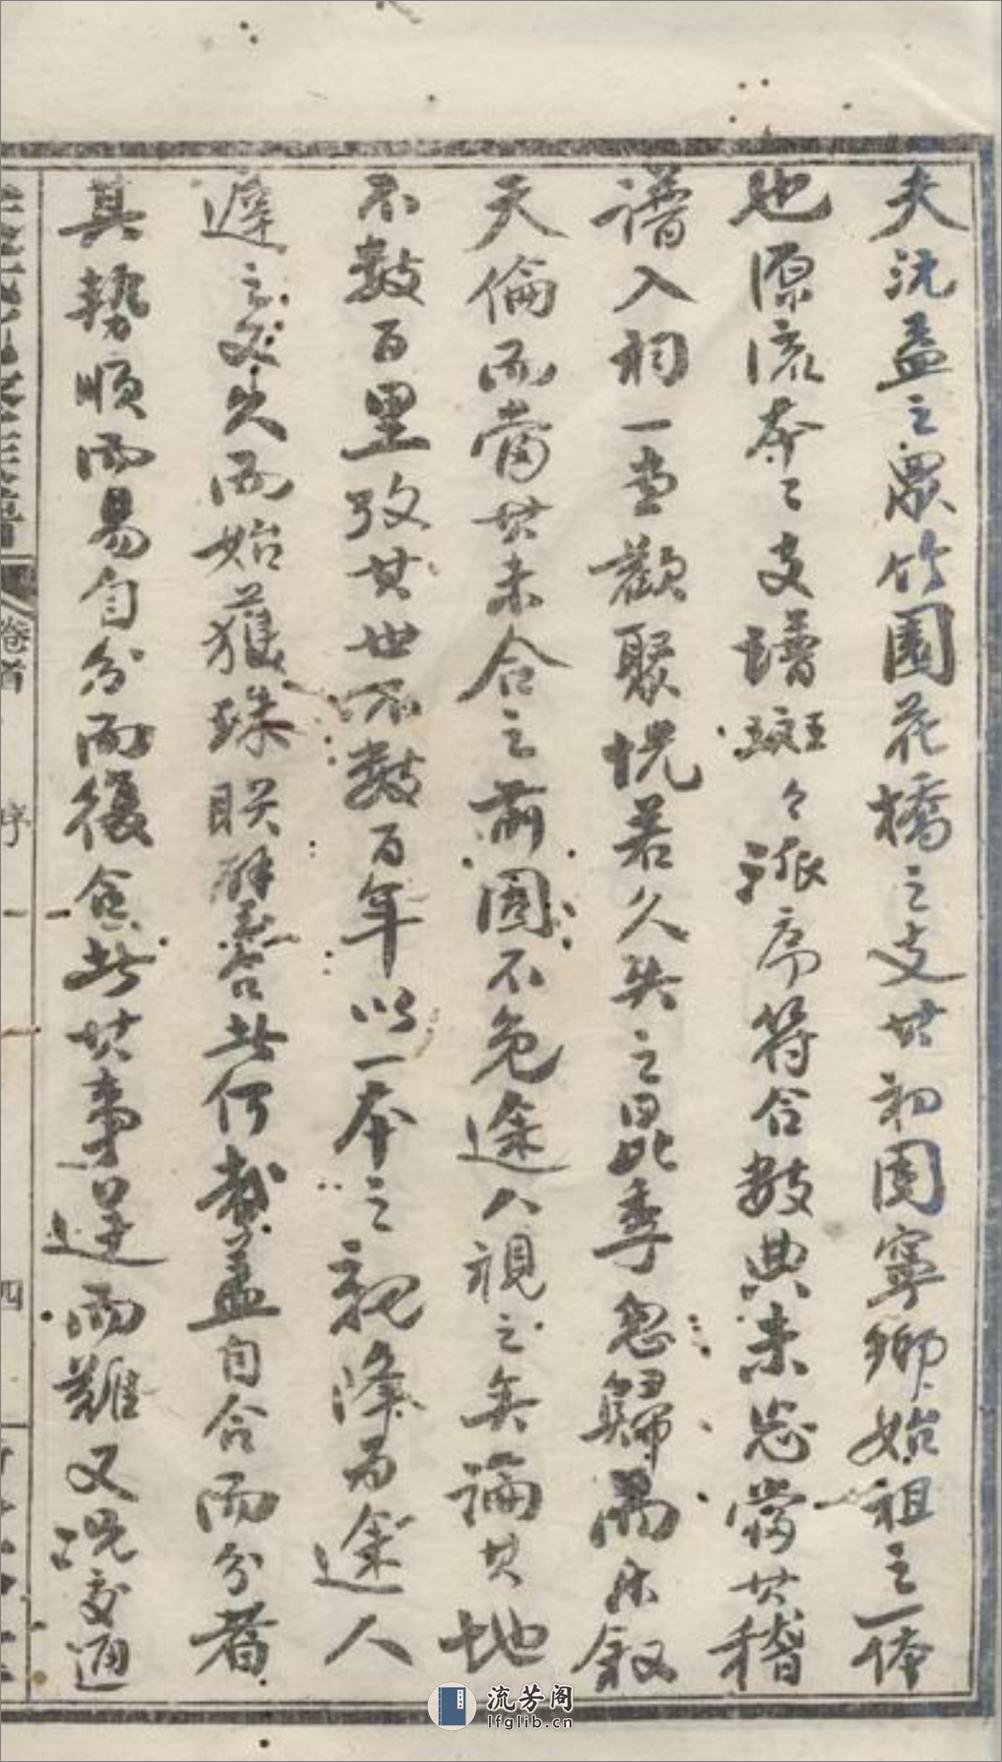 夫沅益之眾竹園花橋之支其初固寧鄉始祖之一体
也源流夲〻支譜斑〻派序符合數典未忘當其稽
譜入祠一堂歡聚恍若久失之昆季忽歸而余叙
天倫而當其未合之前固不免途人視之矣論其地
不數百里攷其世不數百年以一本之親降為途人
遲之又久而始獲珠聯璧合此何故盖自合而分者
其勢順而易自分而復合者其事逆而難又況交通
卷首
序
四
流芳阁
lfglib.cn